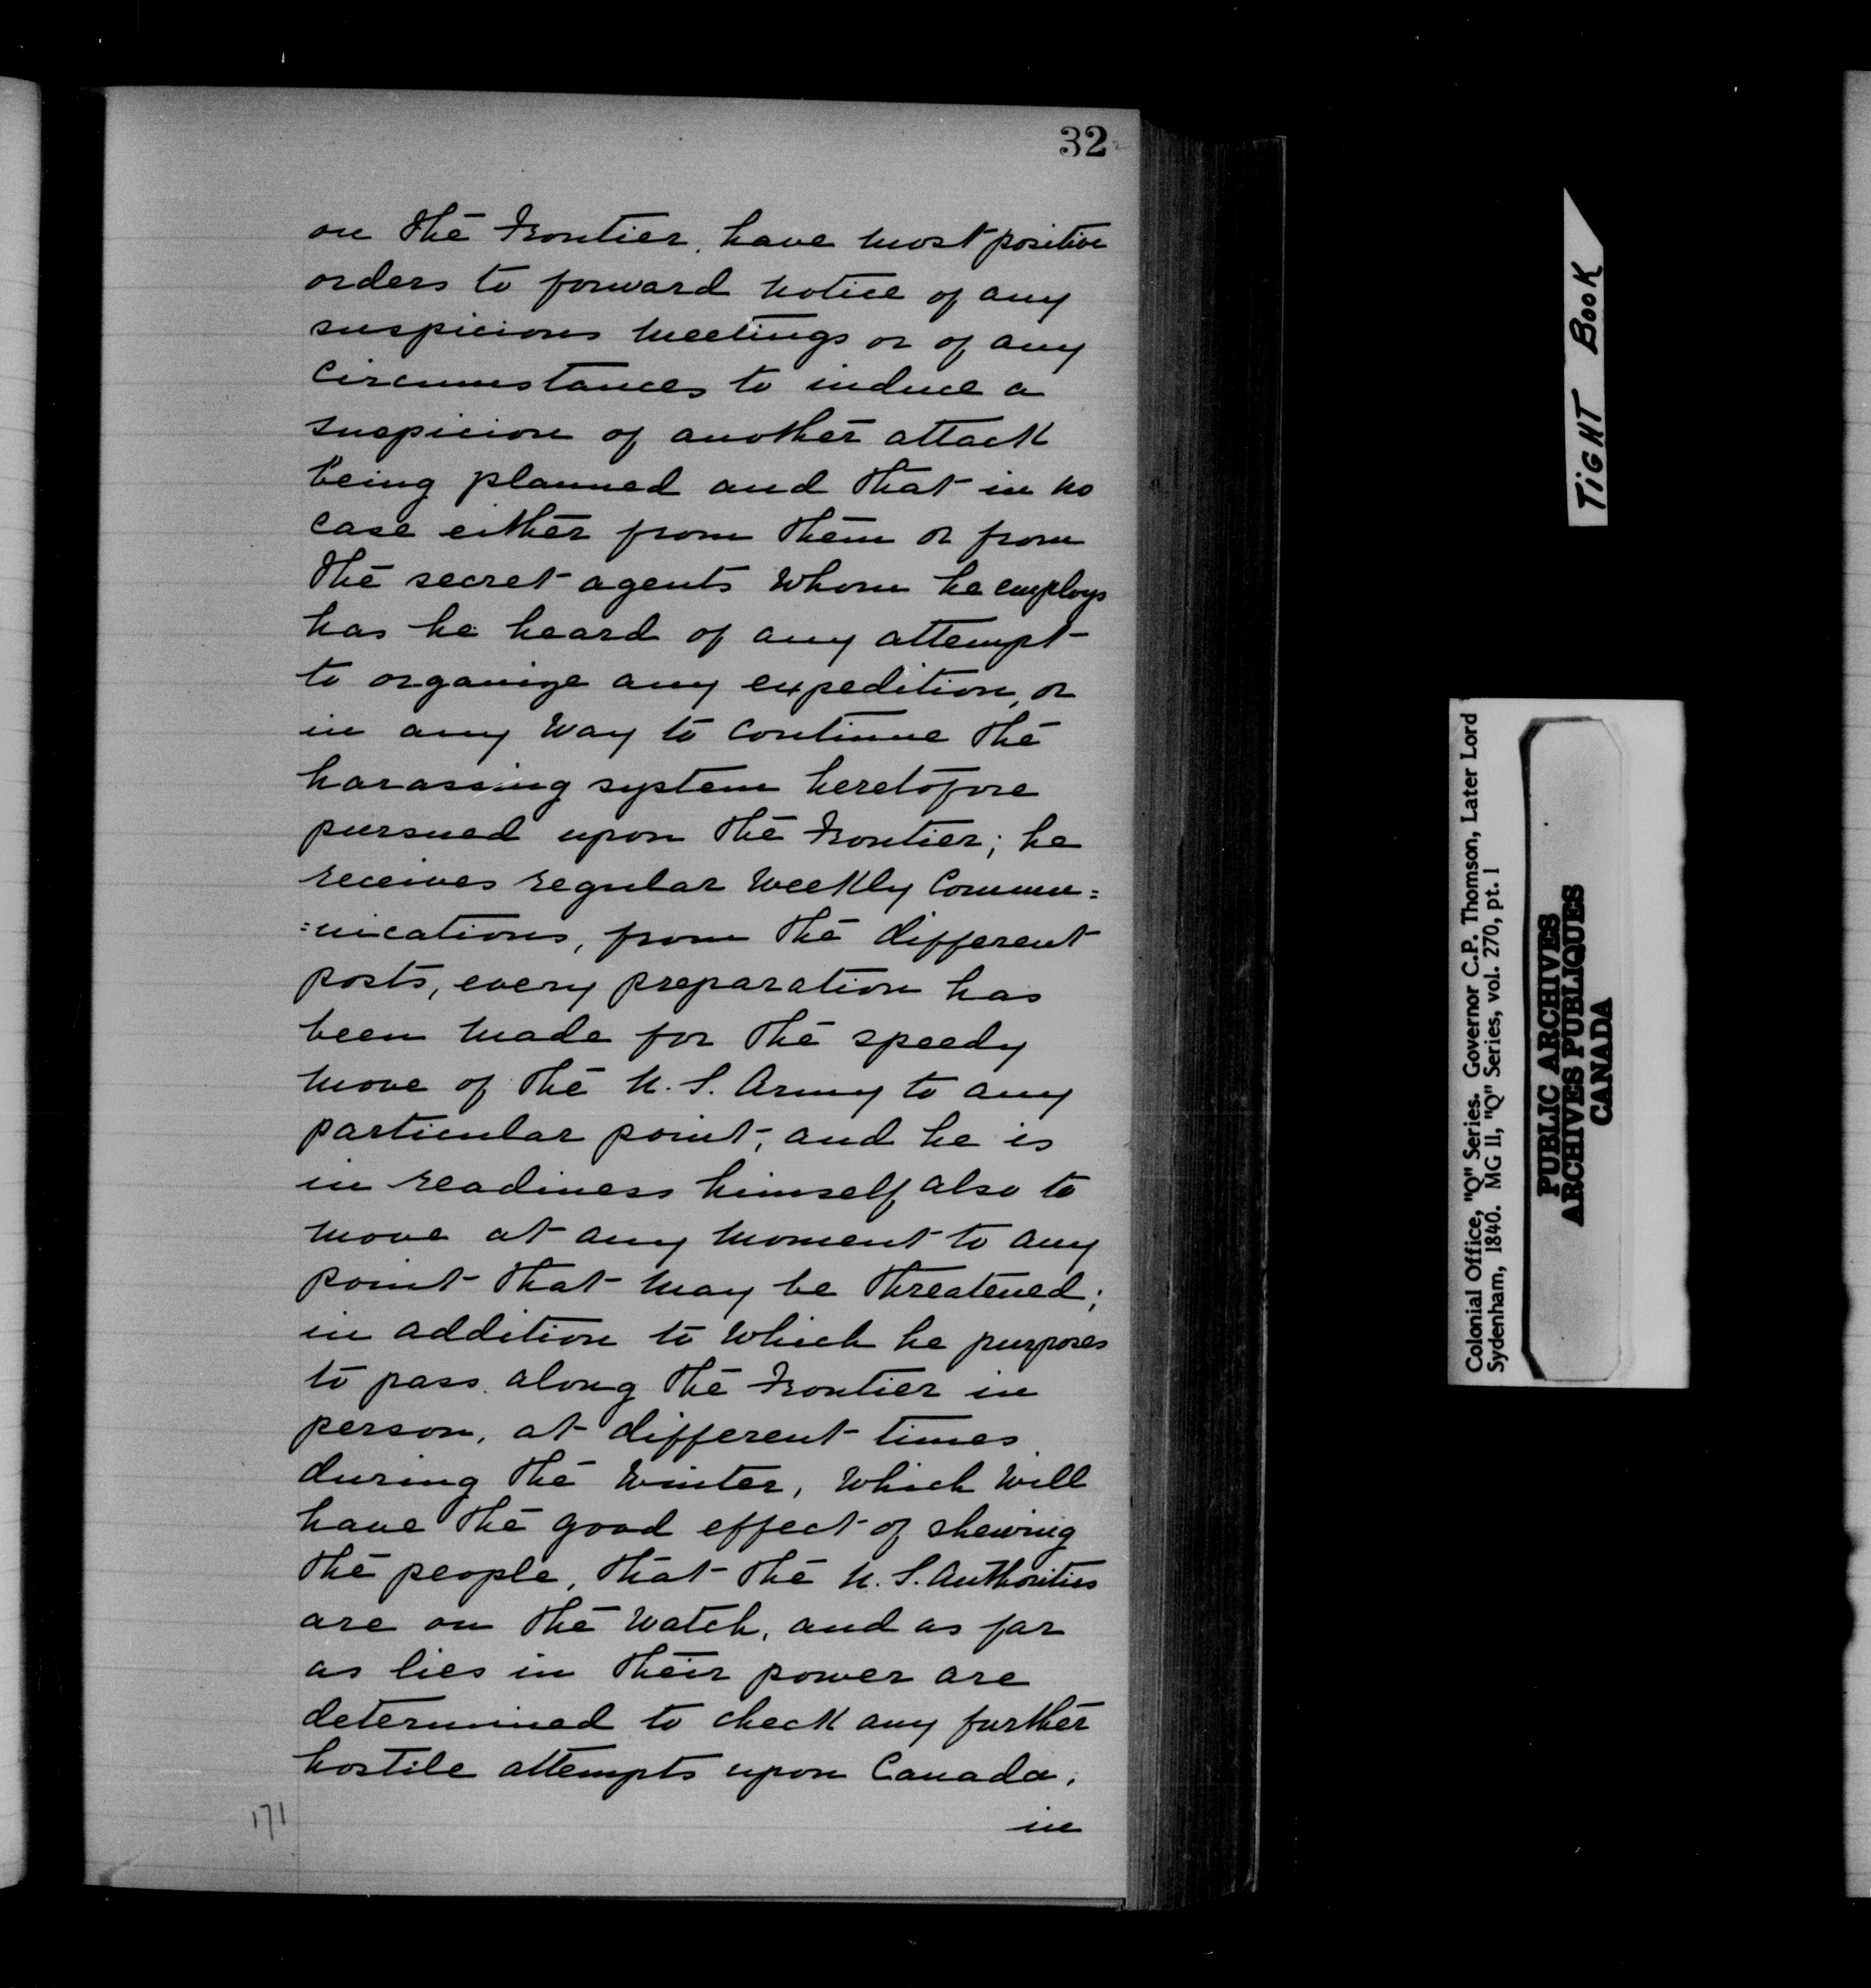 32
on the Frontier, have most positive
orders to forward notice of any
suspicious meetings or of any
circumstances to induce a
suspicion of another attack
being planned and that in no
case either from them or from
the secret agents whom he employs
has he heard of any attempt
to organize any expedition, or
in any way to continue the
harassing system heretofore
pursued upon the Frontier; he
receives regular weekly commu=
=nications, from the different
posts, every preparation has
been made for the speedy
move of the U.S. Army to any
particular point, and he is
in readiness himself also to
move at any moment to any
point that may be threatened;
in addition to which he purposes
to pass along the Frontier in
person, at different times
during the winter, which will
have the good effect of shewing
the people, that the U.S. Authorities
are on the watch, and as far
as lies in their power are
determined to check any further
hostile attempts upon Canada,
in
171
TIGHT BOOK
Colonial Office, "Q" Series. Governor C.P. Thomson, Later Lord
Sydenham, 1840. MG 11, "Q" Series, vol. 270, pt. 1
PUBLIC ARCHIVES
ARCHIVES PUBLIQUES
CANADA